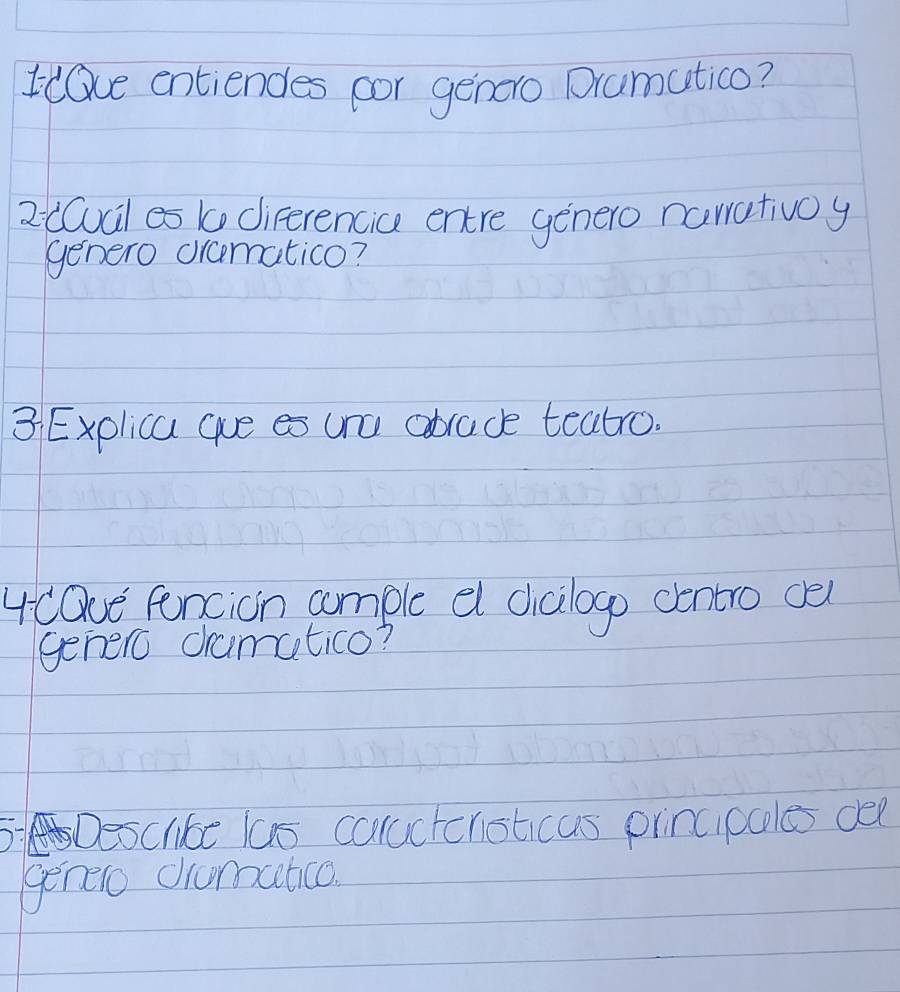 1-¿Que entiendes por género Dramatico?
2-¿Cuál es la diferencia entre género narrativo y
género dramatico?
3-Explica que es una obra de teatro.
4-¿Qué función cumple el diálogo dentro del
género dramatico?
5- Describe las caracteristicas principales del
género dramatico.